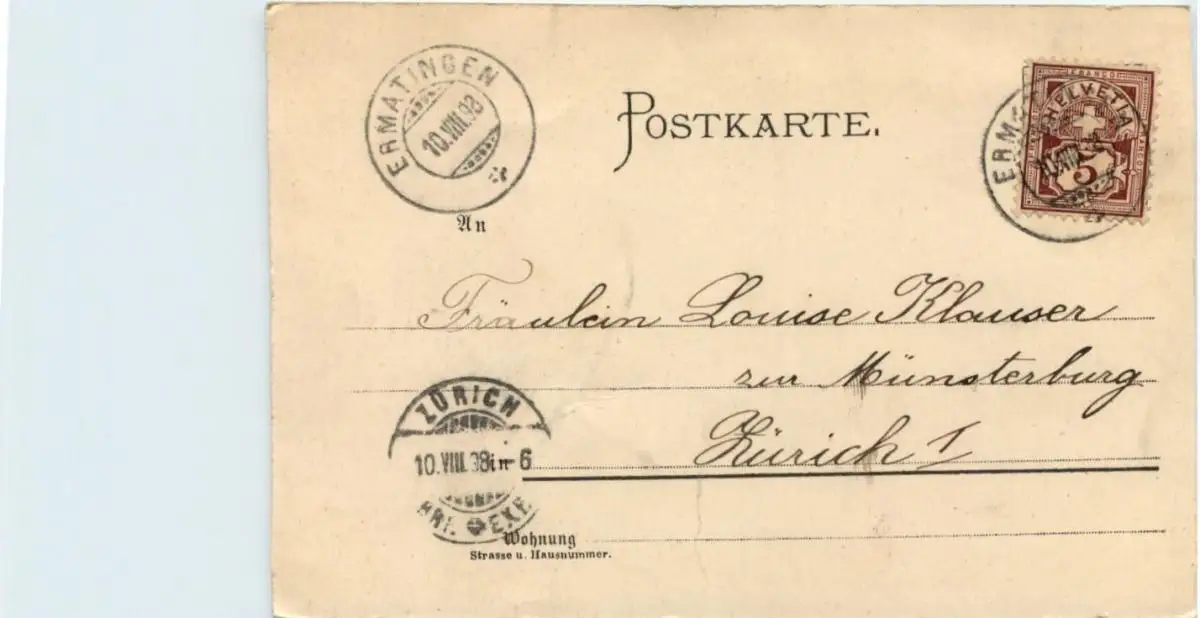 ERMATINGEN
10.VIII.98
POSTKARTE.
FRANCO
HELVETIA
5
An
Fräulein Louise Klauser
zur Münsterburg
Zürich 1
ZÜRICH
10.VIII.98 - 6
in
EXP
Wohnung
Strasse u. Hausnummer.